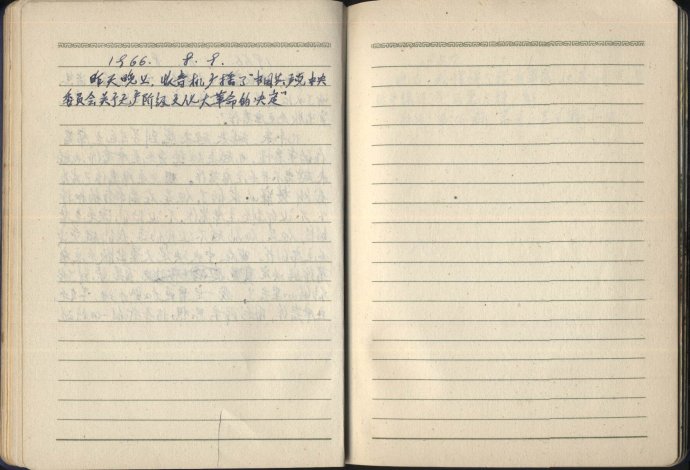 1966. 8. 9.
昨天晚上，收音机广播了"中国共产党中央
委员会关于无产阶级文化大革命的决定"